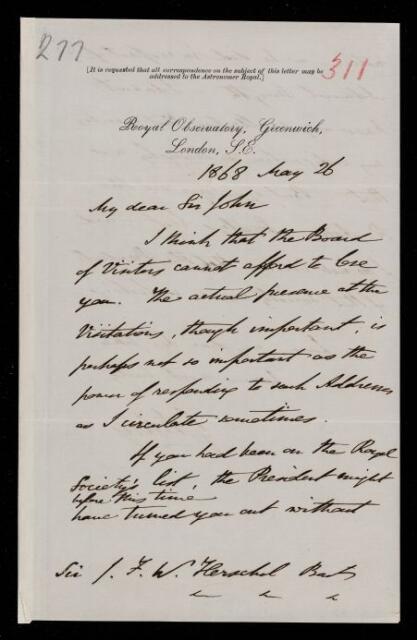 277
[It is requested that all correspondence on the subject of this letter may be
addressed to the Astronomer Royal.]
311
Royal Observatory, Greenwich,
London, S.E.
1868 May 26
My dear Sir John
I think that the Board
of Visitors cannot afford to lose
you. The actual presence at the
Visitations, though important, is
perhaps not so important as the
power of responding to such Addresses
as I circulate sometimes.
If you had been on the Royal
Society's list, the President might
before this time
have turned you out without
Sir J. F. W. Herschel Bart